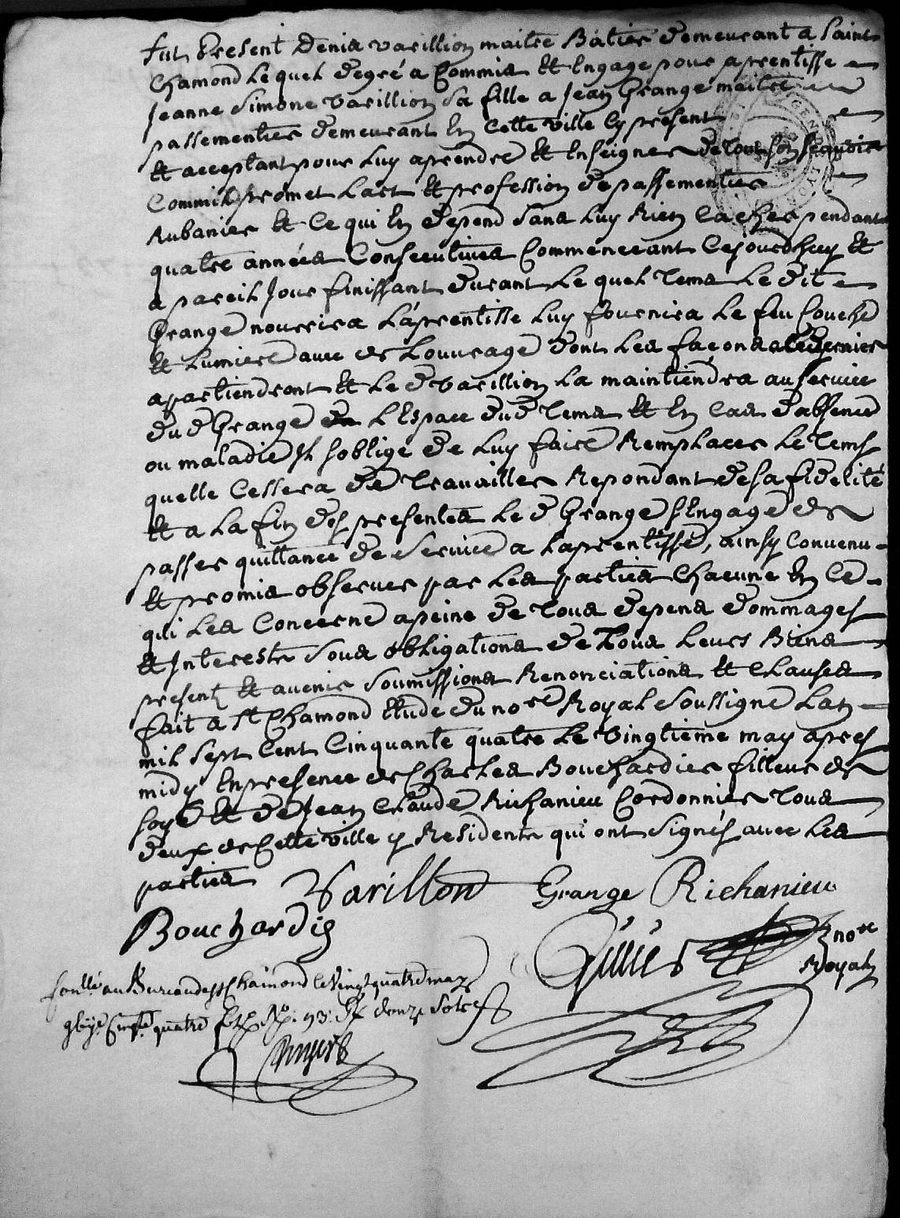 fut Present Denis varillion maitre Batier demeurant a Saint
Chamond Lequel degré a Commis et Engage pour aprentisse
Jeanne Simone varillion Sa fille a Jean Grange maitre
passementier demeurant En Cette ville Cy present
et acceptant pour Luy aprendre et Enseigner de tout son scavoir
Comme il promet Lart et profession de passementier
Rubanier et Ce qui En depend Sans Luy Rien Cacher pendant
quatre années Consecutives Commenceant Cejourdhuy et
a pareil Jour finissant durant Le quel tems Le dit
Grange nourrira L'aprentisse Luy fournira Le feu Couche
et Lumiere avec de Louvrage dont Les façons a ce dernier
apartiendront et Le d varillion La maintiendra au service
du d Grange L'Espace du d tems et En Cas d'absence
ou maladie Il soblige de Luy faire Remplacer Le tems
quelle Cessera de travailler Repondant de sa fidelité
et a La fin des presentes Le d Grange s'Engage de
passer quittance de Service a Laprentisse, ainsy Convenu
et promis observer par Les parties Chacune En Ce
qui Les Concerne apeine de tous depens dommages
et Interests Sous obligations de tous Leurs Biens
present et avenir Soumissions Renonciations et Clauses
fait a St Chamond Etude du nore Royal Soussigne Lan
mil Sept Cent Cinquante quatre Le vingtieme may apres
midy En presence de Charles Bouchardier filleur de
soye et de Jean Claude Richanieu Cordonnier tous
deux de Cette ville y Residents qui ont Signés avec Les
parties
Varillion Grange Richanieu
Bouchardie
nore
Royal
au Bureau de St Chaimond le vingt quatre may
quatre 93 douze sols